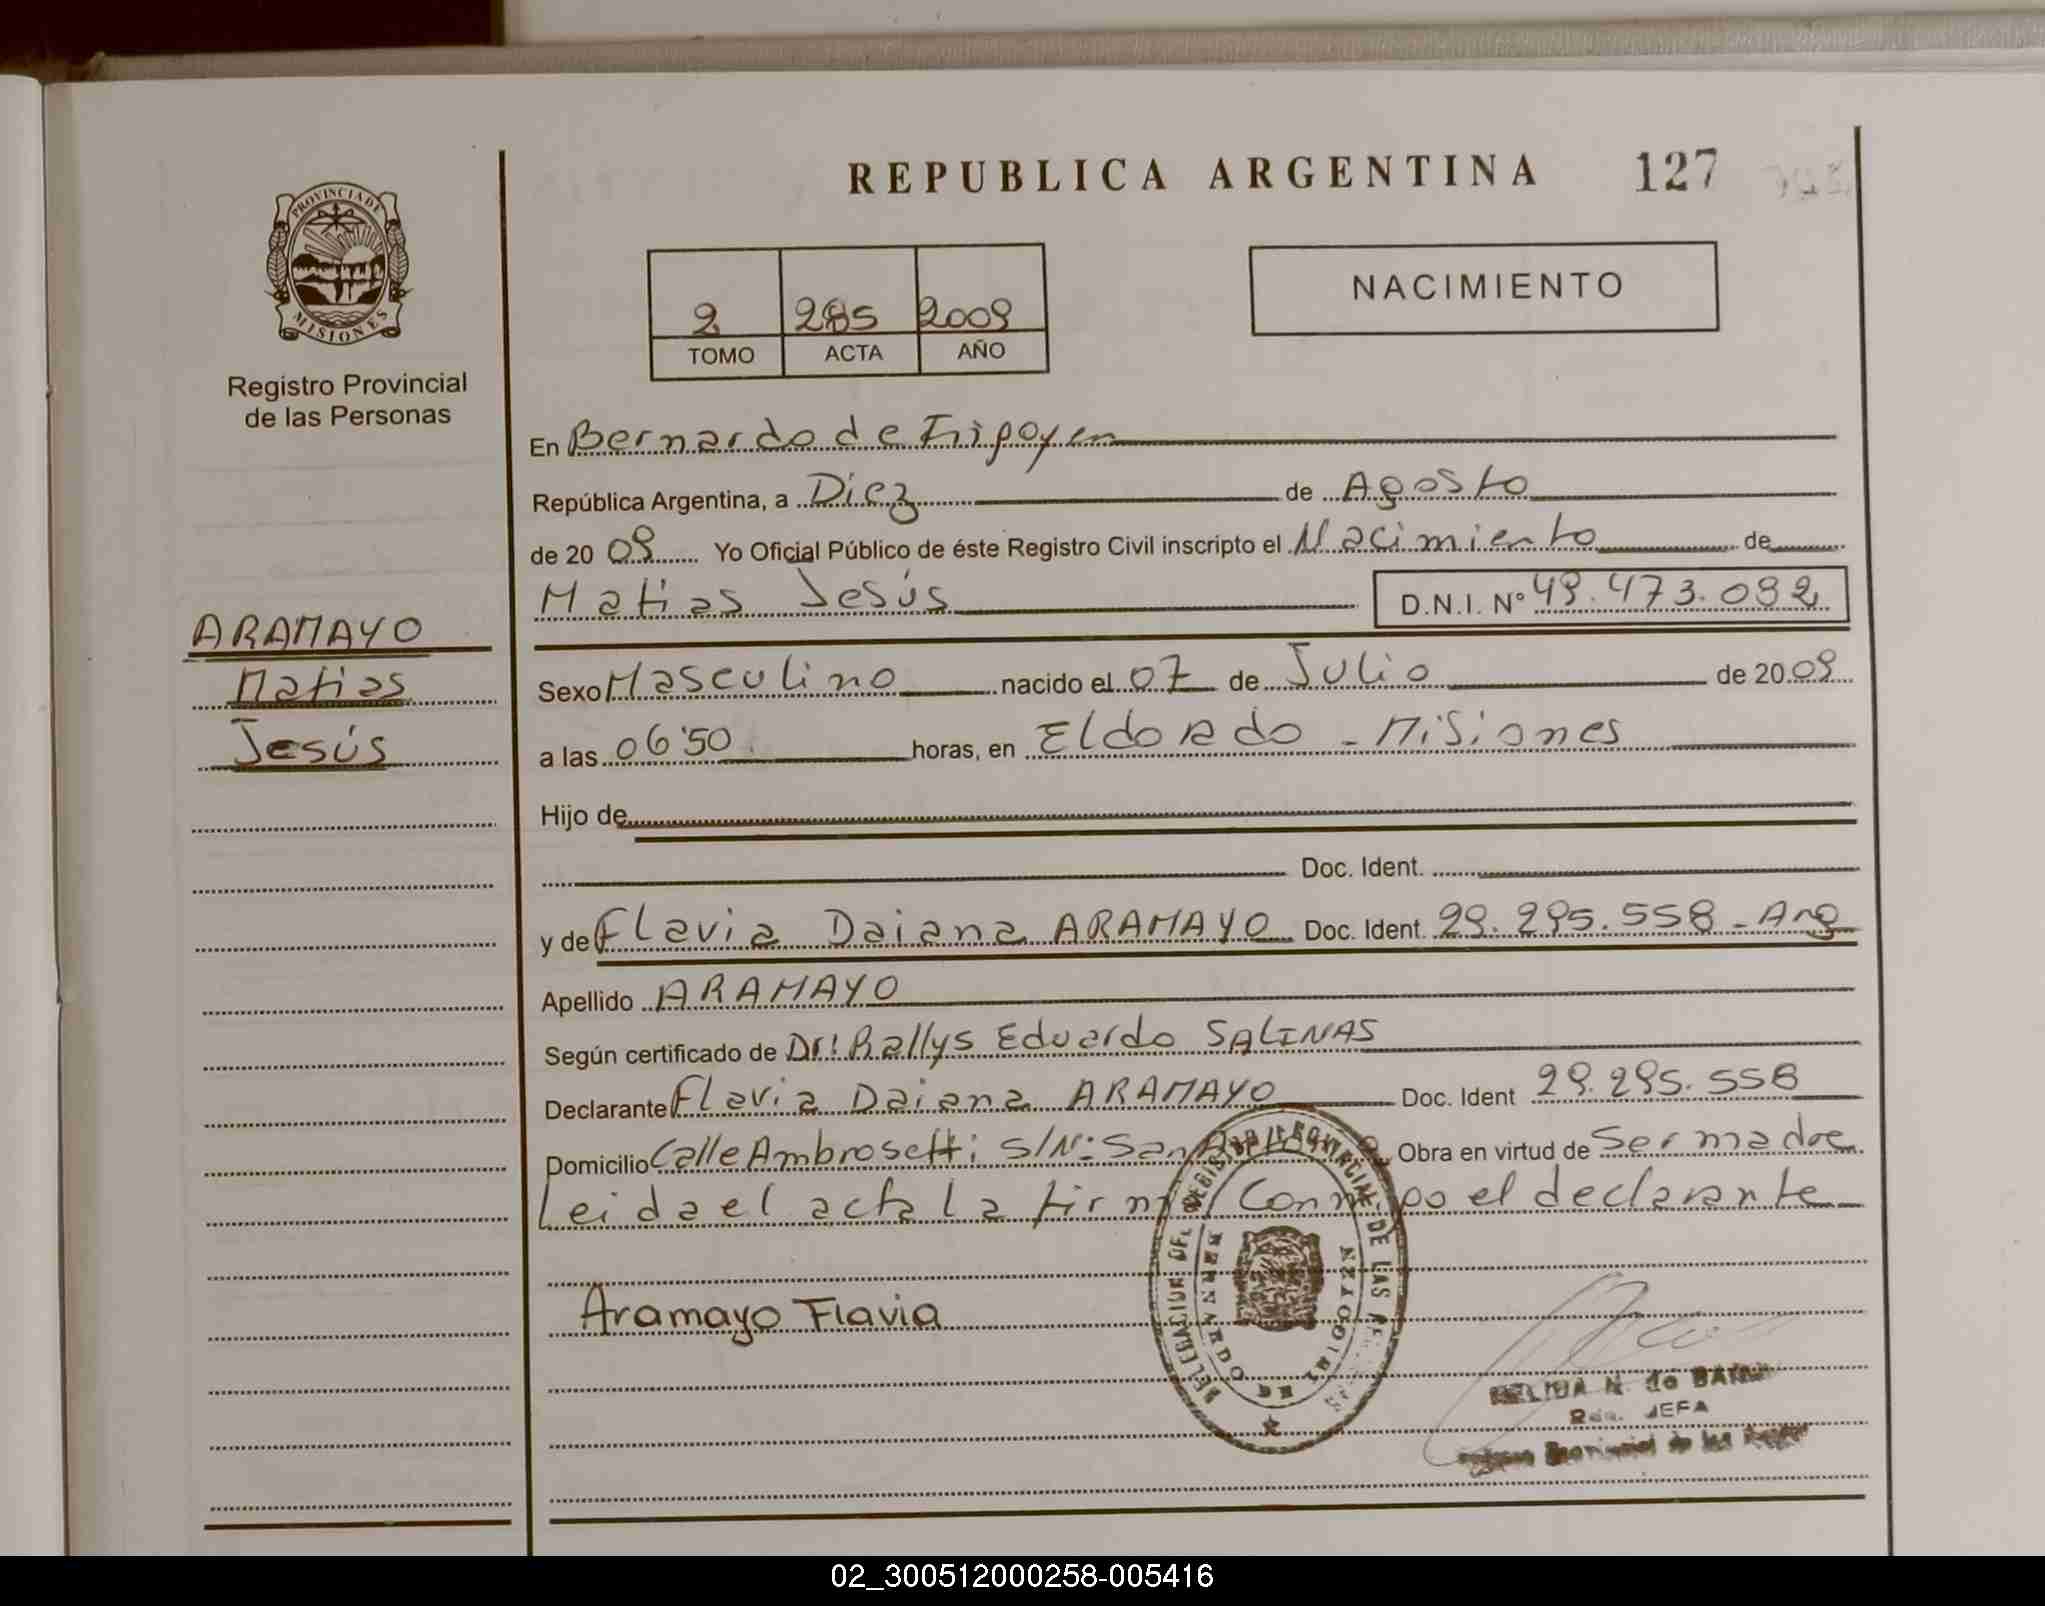 REPUBLICA ARGENTINA 127
PROVINCIA DE
MISIONES
Registro Provincial
de las Personas
2 285 2009
TOMO ACTA AÑO
NACIMIENTO
En Bernardo de Irigoyen
República Argentina, a Diez de Agosto
de 20 09 Yo Oficial Público de éste Registro Civil inscripto el Nacimiento de
Matias Jesús D.N.I. N° 49.473.092
ARAMAYO
Matias
Jesús
Sexo Masculino nacido el 07 de Julio de 20 09
a las 06'50 horas, en Eldorado - Misiones
Hijo de
Doc. Ident.
y de Flavia Daiana ARAMAYO Doc. Ident. 29.295.558 - Arg
Apellido ARAMAYO
Según certificado de Dr: Rallys Eduardo SALINAS
Declarante Flavia Daiana ARAMAYO Doc. Ident 29.295.558
Domicilio Calle Ambrosetti S/N: San Obra en virtud de Ser madre
Leida el acta la firma Conmigo el declarante
Aramayo Flavia
DELEGACION DEL REGISTRO PROVINCIAL DE LAS
BERNARDO DE IRIGOYEN
N. de
JEFA
Provincial de las
02_300512000258-005416